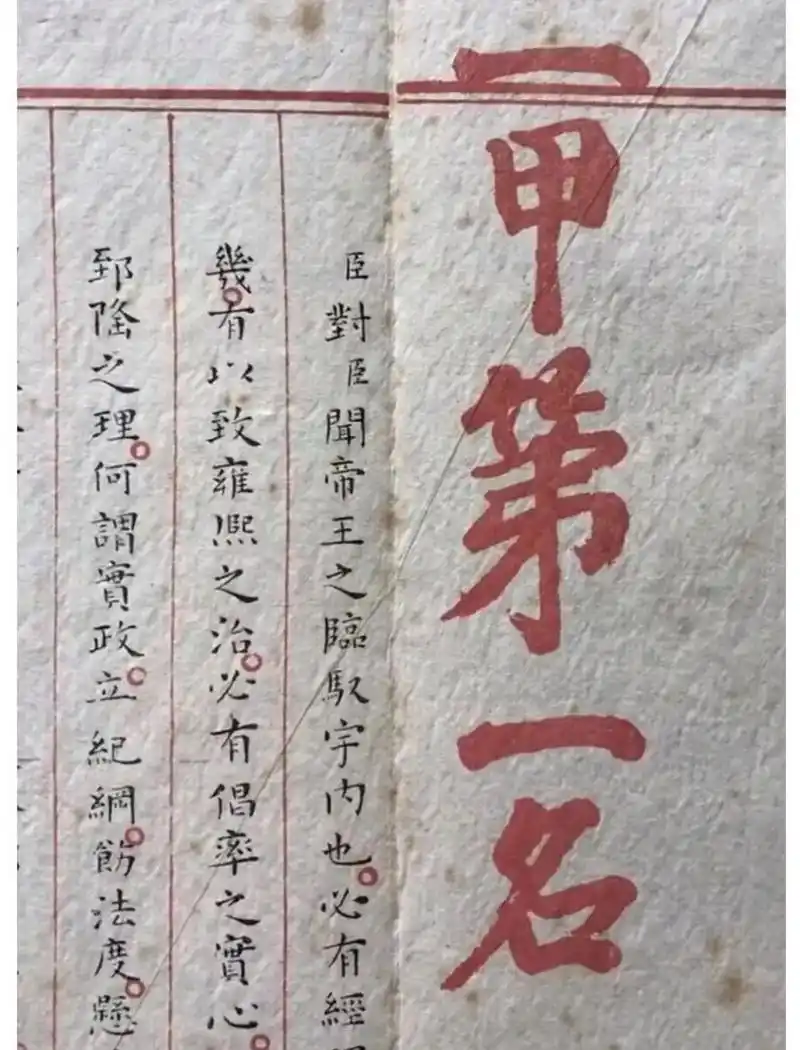 一甲第一名
臣對臣聞帝王之臨馭宇內也。必有經
幾。有以致雍熙之治。必有倡率之實心。
郅隆之理。何謂實政。立紀綱。飭法度。懸